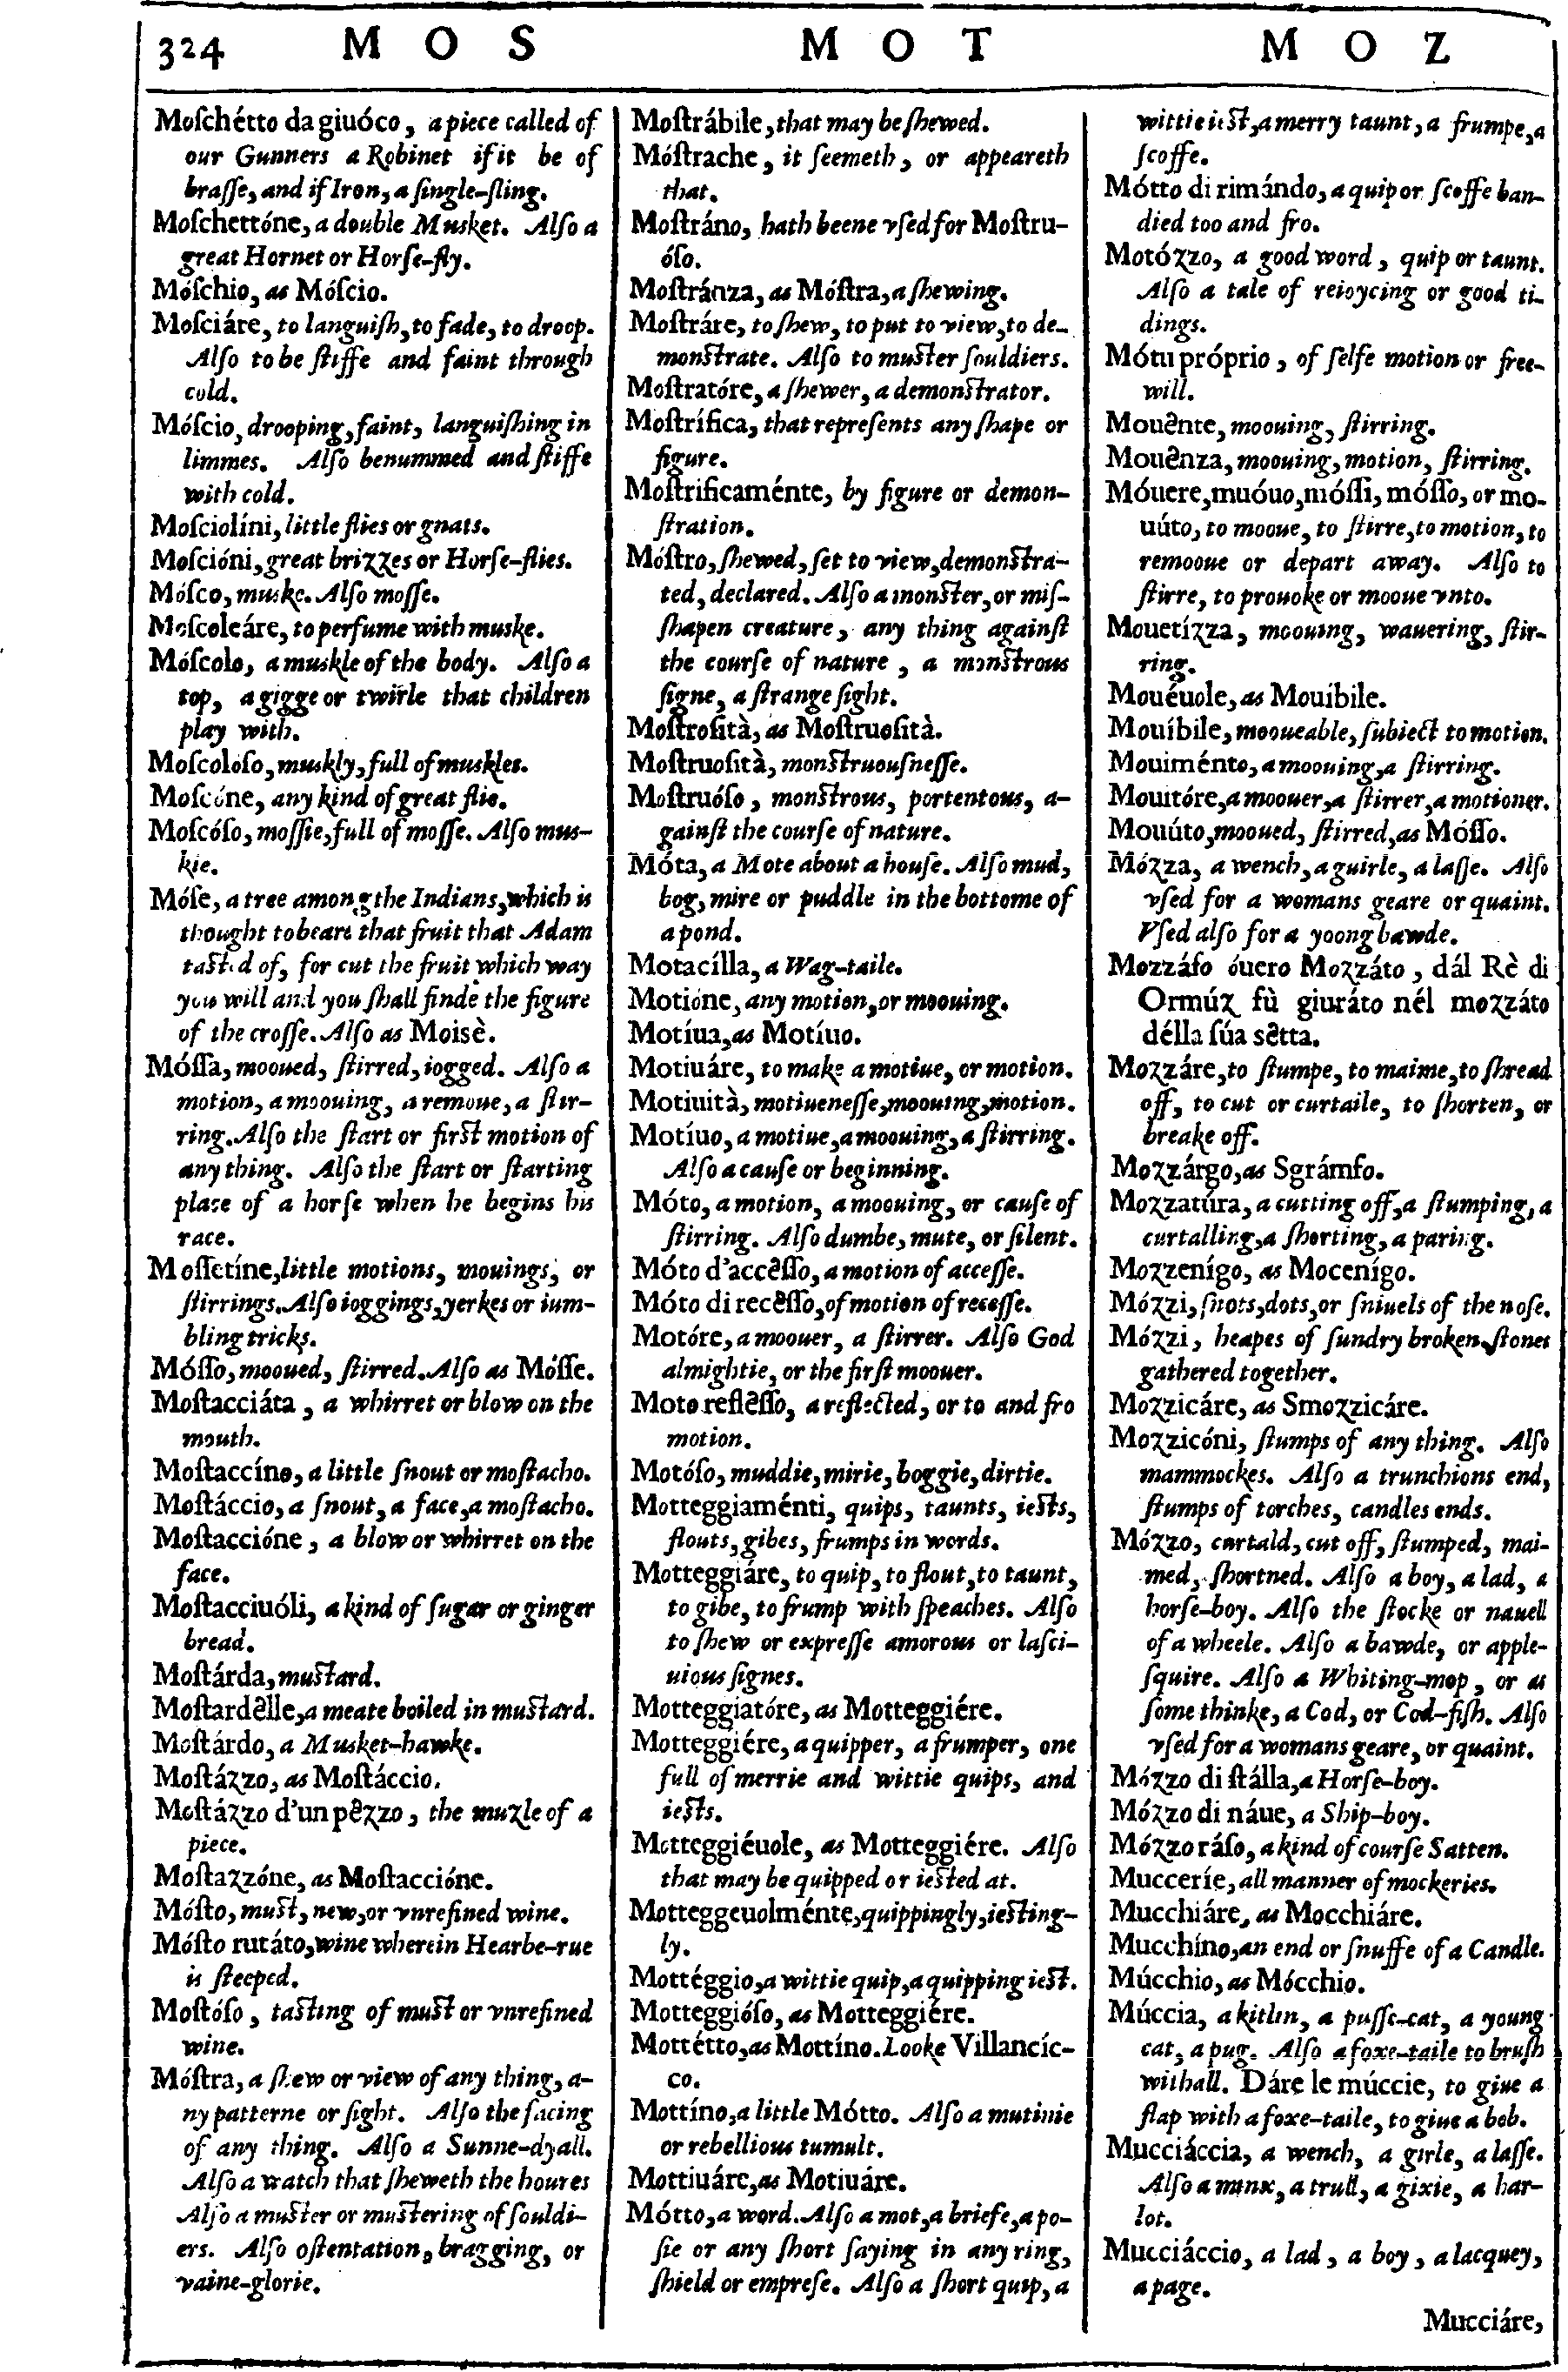 324 MOS MOT MOZ
Moſchétto da giuóco, a piece called of
our Gunners a Robinet if it be of
braſſe, and if Iron, a ſingle-ſling.
Moſchettóne, a double Musket. Alſo a
great Hornet or Horſe-fly.
Móſchio, as Móſcio.
Moſciáre, to languiſh, to fade, to droop.
Alſo to be ſtiffe and faint through
cold.
Móſcio, drooping, faint, languiſhing in
limmes. Alſo benummed and ſtiffe
with cold.
Moſciolíni, little flies or gnats.
Moſcióni, great brizzes or Horſe-flies.
Móſco, muske. Alſo moſſe.
Moſcoleáre, to perfume with muske.
Móſcolo, a muskle of the body. Alſo a
top, a gigge or twirle that children
play with.
Moſcoloſo, muskly, full of muskles.
Moſcóne, any kind of great flie.
Moſcóſo, moſſie, full of moſſe. Alſo mus-
kie.
Móſe, a tree among the Indians, which is
thought to beare that fruit that Adam
taſted of, for cut the fruit which way
you will and you ſhall finde the figure
of the croſſe. Alſo as Moisè.
Móſſa, mooued, ſtirred, iogged. Alſo a
motion, a moouing, a remoue, a ſtir-
ring. Alſo the ſtart or firſt motion of
any thing. Alſo the ſtart or ſtarting
place of a horſe when he begins his
race.
Moſſetíne, little motions, mouings, or
ſtirrings. Alſo ioggings, yerkes or ium-
bling tricks.
Móſſo, mooued, ſtirred. Alſo as Móſſe.
Moſtacciáta, a whirret or blow on the
mouth.
Moſtaccíno, a little ſnout or moſtacho.
Moſtáccio, a ſnout, a face, a moſtacho.
Moſtaccióne, a blow or whirret on the
face.
Moſtacciuóli, a kind of ſugar or ginger
bread.
Moſtárda, muſtard.
Moſtardêlle, a meate boiled in muſtard.
Moſtárdo, a Musket-hawke.
Moſtázzo, as Moſtáccio.
Moſtázzo d'un pêzzo, the muzle of a
piece.
Moſtazzóne, as Moſtaccióne.
Móſto, muſt, new, or vnrefined wine.
Móſto rutáto, wine wherein Hearbe-rue
is ſteeped.
Moſtóſo, taſting of muſt or vnrefined
wine.
Móſtra, a ſhew or view of any thing, a-
ny patterne or ſight. Alſo the facing
of any thing. Alſo a Sunne-dyall.
Alſo a watch that ſheweth the houres
Alſo a muſter or muſtering of ſouldi-
ers. Alſo oſtentation, bragging, or
vaine-glorie.
Moſtrábile, that may be ſhewed.
Móſtrache, it ſeemeth, or appeareth
that.
Moſtráno, hath beene vſed for Moſtru-
óſo.
Moſtránza, as Móſtra, a ſhewing.
Moſtráre, to ſhew, to put to view, to de-
monſtrate. Alſo to muſter ſouldiers.
Moſtratóre, a ſhewer, a demonſtrator.
Moſtrífica, that repreſents any ſhape or
figure.
Moſtrificaménte, by figure or demon-
ſtration.
Móſtro, ſhewed, ſet to view, demonſtra-
ted, declared. Alſo a monſter, or miſ-
ſhapen creature, any thing againſt
the courſe of nature, a monſtrous
ſigne, a ſtrange ſight.
Moſtroſità, as Moſtruoſità.
Moſtruoſità, monſtruouſneſſe.
Moſtruóſo, monſtrous, portentous, a-
gainſt the courſe of nature.
Móta, a Mote about a houſe. Alſo mud,
bog, mire or puddle in the bottome of
a pond.
Motacílla, a Wag-taile.
Motióne, any motion, or moouing.
Motíua, as Motíuo.
Motiuáre, to make a motiue, or motion.
Motiuità, motiueneſſe, moouing, motion.
Motíuo, a motiue, a moouing, a ſtirring.
Alſo a cauſe or beginning.
Móto, a motion, a moouing, or cauſe of
ſtirring. Alſo dumbe, mute, or ſilent.
Móto d'accêſſo, a motion of acceſſe.
Móto di recêſſo, of motion of receſſe.
Motóre, a moouer, a ſtirrer. Alſo God
almightie, or the firſt moouer.
Moto reflêſſo, a reflected, or to and fro
motion.
Motóſo, muddie, mirie, boggie, dirtie.
Motteggiaménti, quips, taunts, ieſts,
flouts, gibes, frumps in words.
Motteggiáre, to quip, to flout, to taunt,
to gibe, to frump with ſpeaches. Alſo
to ſhew or expreſſe amorous or laſci-
uious ſignes.
Motteggiatóre, as Motteggiére.
Motteggiére, a quipper, a frumper, one
full of merrie and wittie quips, and
ieſts.
Motteggiéuole, as Motteggiére. Alſo
that may be quipped or ieſted at.
Motteggeuolménte, quippingly, ieſting-
ly.
Mottéggio, a wittie quip, a quipping ieſt.
Motteggióſo, as Motteggiére.
Mottétto, as Mottíno. Looke Villancíc-
co.
Mottíno, a little Mótto. Alſo a mutinie
or rebellious tumult.
Mottiuáre, as Motiuáre.
Mótto, a word. Alſo a mot, a briefe, a po-
ſie or any ſhort ſaying in any ring,
ſhield or empreſe. Alſo a ſhort quip, a
wittie ieſt, a merry taunt, a frumpe, a
ſcoffe.
Mótto di rimándo, a quip or ſcoffe ban-
died too and fro.
Motózzo, a good word, quip or taunt.
Alſo a tale of reioycing or good ti-
dings.
Mótu próprio, of ſelfe motion or free-
will.
Mouênte, moouing, ſtirring.
Mouênza, moouing, motion, ſtirring.
Móuere, muóuo, móſſi, móſſo, or mo-
uúto, to mooue, to ſtirre, to motion, to
remooue or depart away. Alſo to
ſtirre, to prouoke or mooue vnto.
Mouetízza, moouing, wauering, ſtir-
ring.
Mouéuole, as Mouíbile.
Mouíbile, mooueable, ſubiect to motion.
Mouiménto, a moouing, a ſtirring.
Mouitóre, a moouer, a ſtirrer, a motioner.
Mouúto, mooued, ſtirred, as Móſſo.
Mózza, a wench, a guirle, a laſſe. Alſo
vſed for a womans geare or quaint.
Vſed alſo for a yoong bawde.
Mozzáfo óuero Mozzáto, dál Rè di
Ormúz fù giuráto nél mozzáto
délla ſúa sêtta.
Mozzáre, to ſtumpe, to maime, to ſhread
off, to cut or curtaile, to ſhorten, or
breake off.
Mozzárgo, as Sgrámfo.
Mozzatúra, a cutting off, a ſtumping, a
curtalling, a ſhorting, a paring.
Mozzenígo, as Mocenígo.
Mózzi, ſnots, dots, or ſniuels of the noſe.
Mózzi, heapes of ſundry broken ſtones
gathered together.
Mozzicáre, as Smozzicáre.
Mozzicóni, ſtumps of any thing. Alſo
mammockes. Alſo a trunchions end,
ſtumps of torches, candles ends.
Mózzo, curtald, cut off, ſtumped, mai-
med, ſhortned. Alſo a boy, a lad, a
horſe-boy. Alſo the ſtocke or nauell
of a wheele. Alſo a bawde, or apple-
ſquire. Alſo a Whiting-mop, or as
ſome thinke, a Cod, or Cod-fiſh. Alſo
vſed for a womans geare, or quaint.
Mózzo di ſtálla, a Horſe-boy.
Mózzo di náue, a Ship-boy.
Mózzo ráſo, a kind of courſe Satten.
Mucceríe, all manner of mockeries.
Mucchiáre, as Mocchiáre.
Mucchíno, an end or ſnuffe of a Candle.
Múcchio, as Mócchio.
Múccia, a kitlin, a puſſe-cat, a young
cat, a pug. Alſo a foxe-taile to bruſh
withall. Dáre le múccie, to giue a
flap with a foxe-taile, to giue a bob.
Mucciáccia, a wench, a girle, a laſſe.
Alſo a minx, a trull, a gixie, a har-
lot.
Mucciáccio, a lad, a boy, a lacquey,
a page.
Mucciáre,